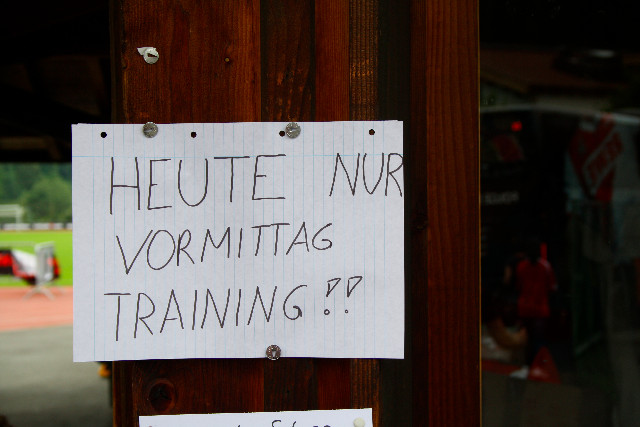 HEUTE NUR
VORMITTAG
TRAINING!!